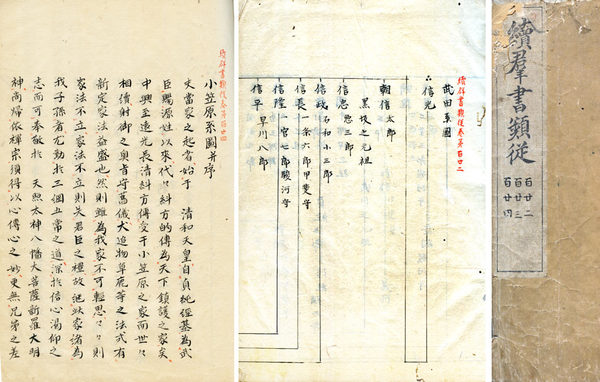 續羣書類従
百廿二
百廿三
百廿四
續群書類従巻第百廿二
武田系圖
信光
朝信 太郎
黒坂之元祖
信忠 悪三郎
信政 石和小三郎
信長 一条六郎甲斐守
信隆 一宮七郎駿河守
信平 早川八郎
續群書類従巻第百廿四
小笠原系圖并序
夫當家之起者始于 清和天皇自貞純經基為武
臣賜源姓以来代々糾方的傳為天下鎮護之家矣
中興至遠光長清糾方傳受于小笠原之家而世々
相續射御之奥旨守舊儀犬追物草鹿等之法式有
新定家法益盛也然則雖為我家不可輕思々々則
家法不立家法不立則失君臣之禮故絶 家諸為
我子孫者尤勤於三綱五常之道深於信心渇仰之
志而可奉敬於 天照太神八幡大菩薩新羅大明
神而帰依禪宗須得以心傳心之妙更無兄弟之差